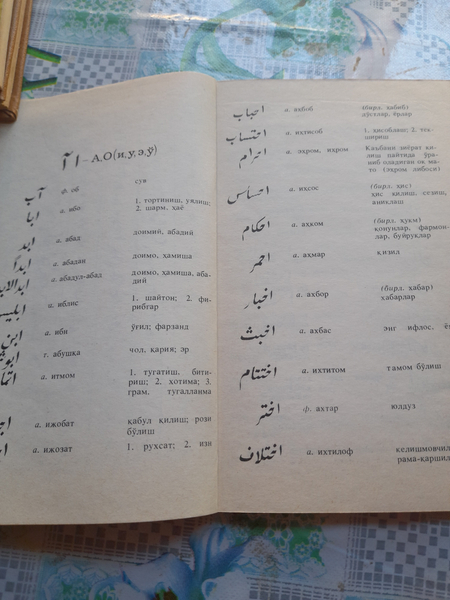 ا آ – А.О(и,у,э,ў)
آب ф. об сув
ابا а. або 1. тортиниш, уялиш;
2. шарм, ҳаё
ابد а. абад доимий, абадий
а. абадан доимо, ҳамиша
а. абадул-абад доимо, ҳамиша, аба-
дий
а. иблис 1. шайтон; 2. фи-
рибгар
ابن а. ибн ўғил; фарзанд
т. абушка чол, қария; эр
а. итмом 1. тугатиш, бити-
риш; 2. хотима; 3.
грам. тугалланма
а. ижобат қабул қилиш; рози
бўлиш
а. ижозат 1. рухсат; 2. изн
احباب а. аҳбоб (бирл. ҳабиб)
дўстлар, ёрлар
احتساب а. иҳтисоб 1. ҳисоблаш; 2. тек-
шириш
احرام а. эҳром, иҳром Каъбани зиёрат қи-
лиш пайтида ўра-
ниб оладиган оқ ма-
то (эҳром либоси)
احساس а. иҳсос (бирл. ҳис)
ҳис қилиш, сезиш,
англаш
احكام а. аҳком (бирл. ҳукм)
қонунлар, фармон-
лар, буйруқлар
احمر а. аҳмар қизил
اخبار а. ахбор (бирл. хабар)
хабарлар
اخبث а. ахбас энг ифлос,
اختتام а. ихтитом тамом бўлиш
اختر ф. ахтар юлдуз
اختلاف а. ихтилоф келишмовчил
рама-қаршил